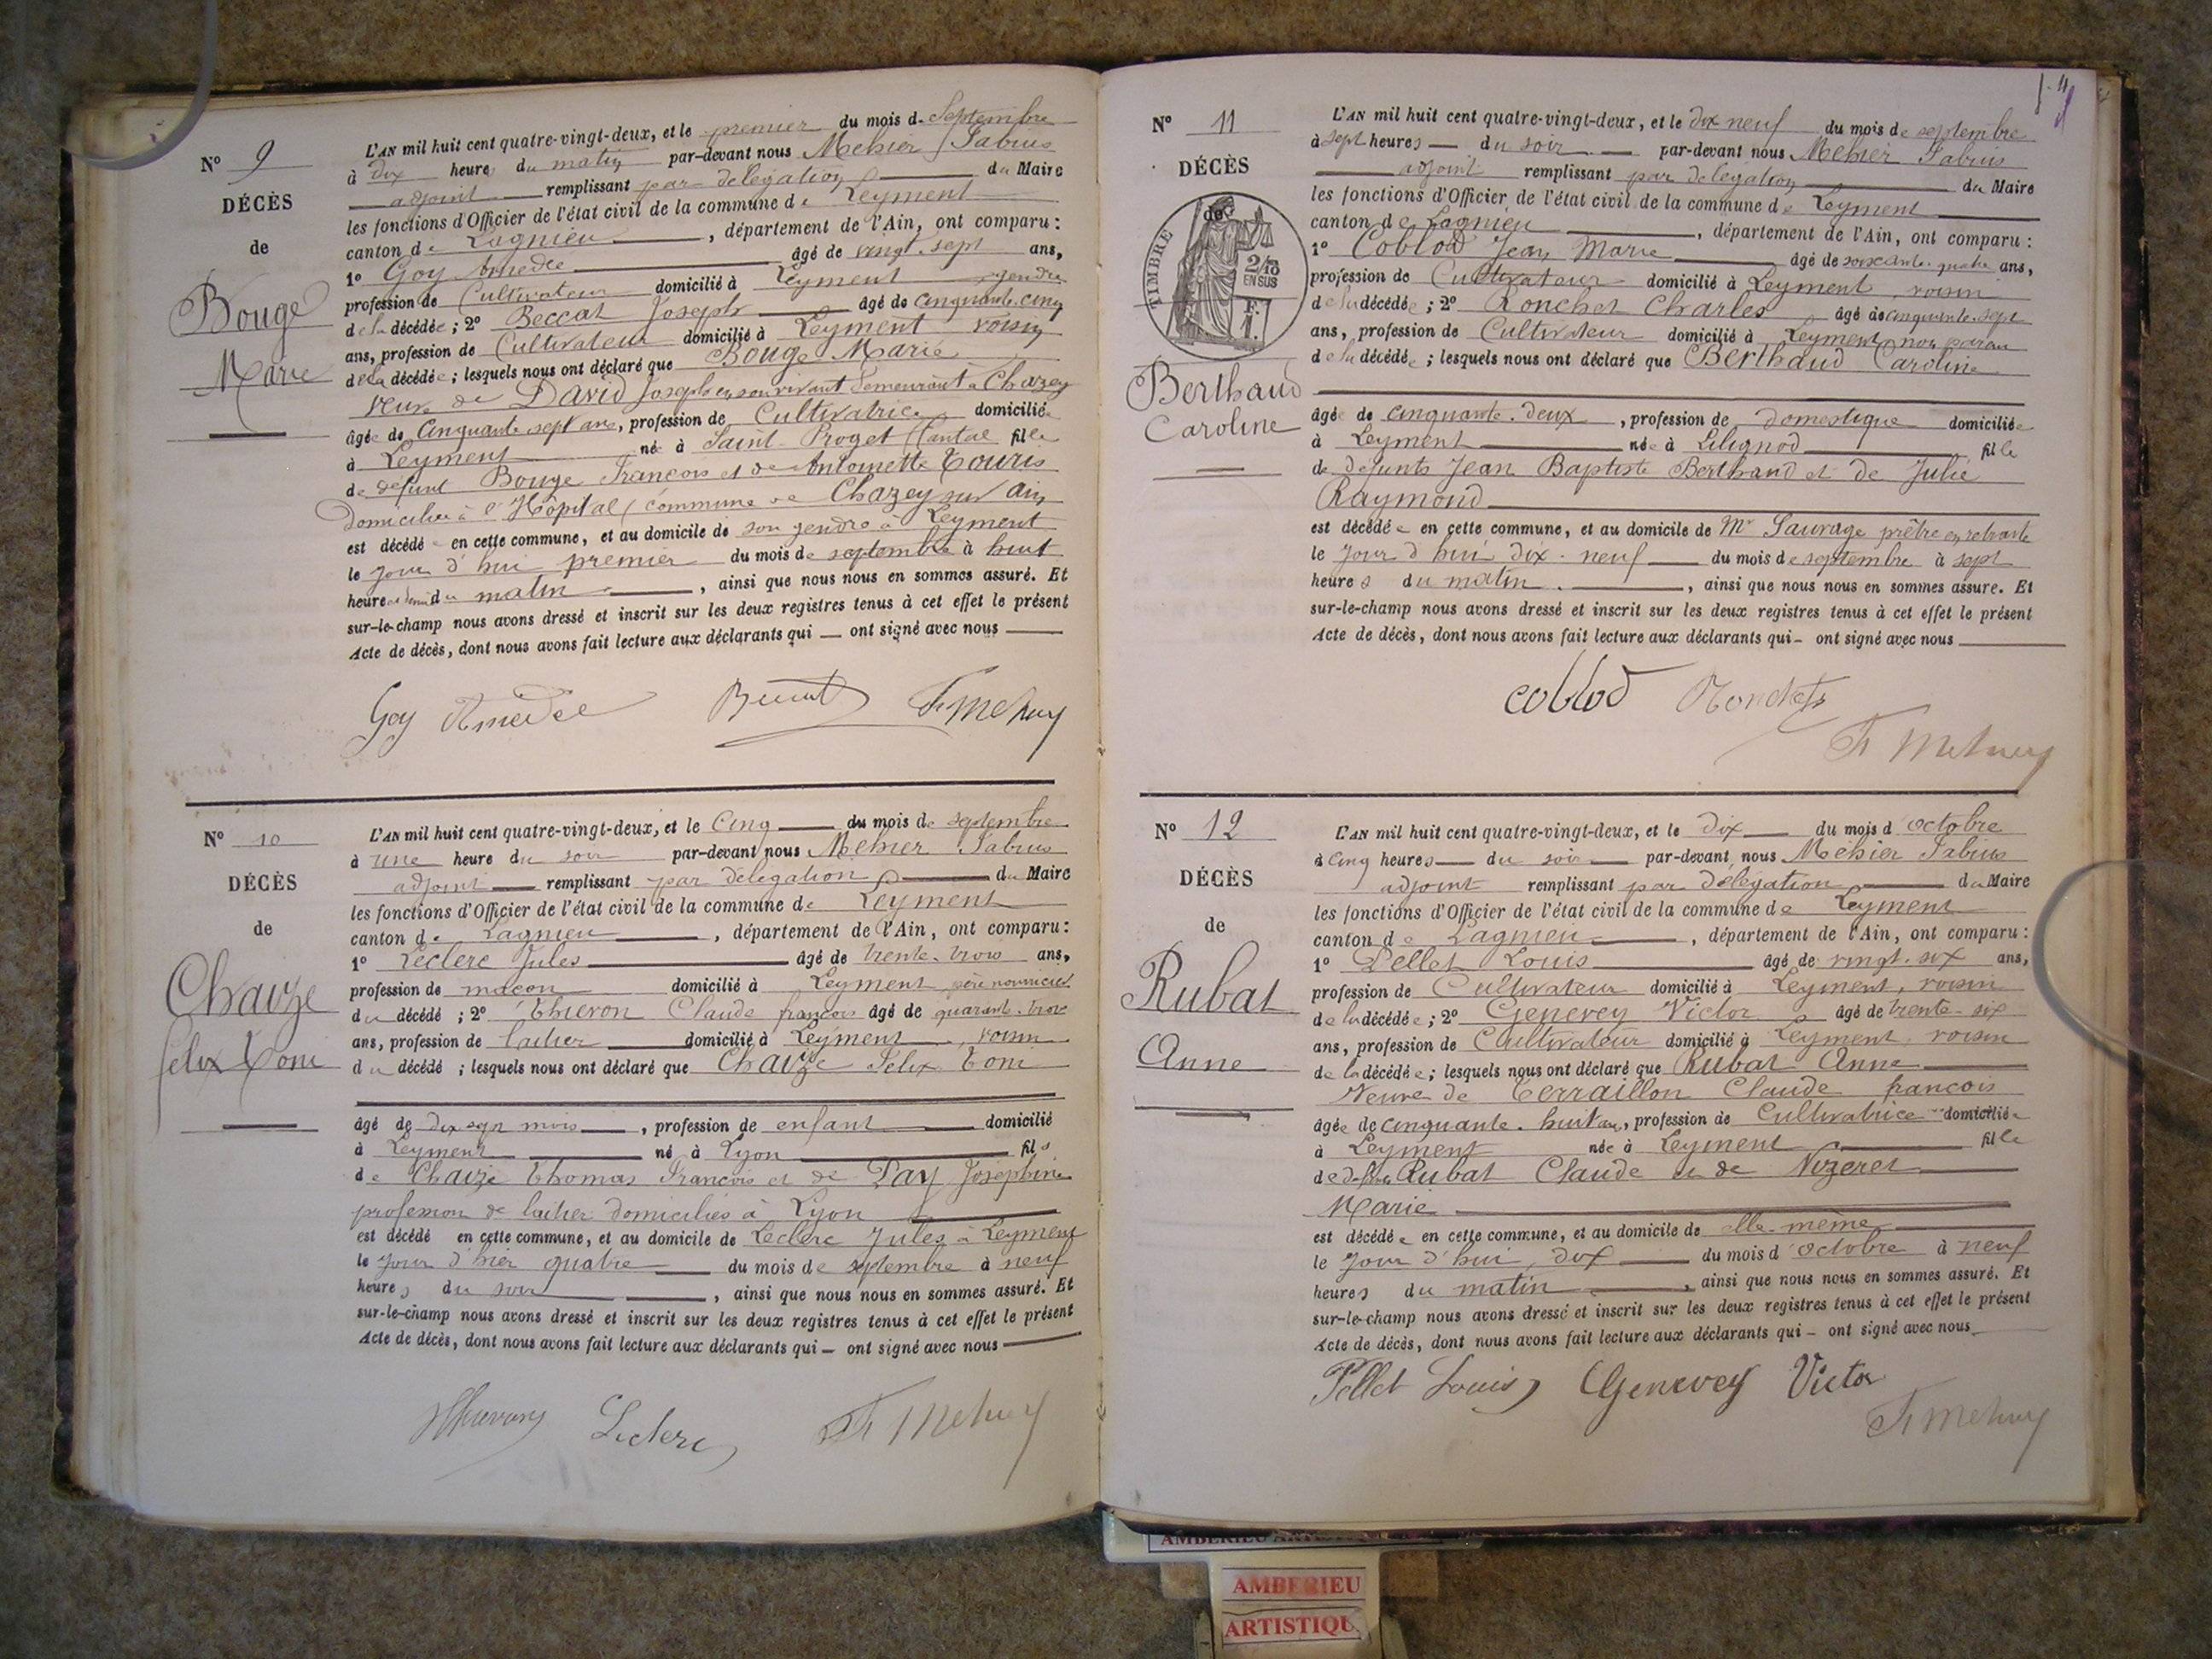 N° 9
DÉCÈS
de
Bouge
Marie
L'AN mil huit cent quatre-vingt-deux, et le premier du mois de Septembre
à dix heures du matin par-devant nous Mehier Fabius
adjoint remplissant par délégation du Maire
les fonctions d'Officier de l'état civil de la commune de Leyment
canton de Lagnieu, département de l'Ain, ont comparu :
1° Goy Amedée âgé de vingt sept ans,
profession de Cultivateur domicilié à Leyment gendre
de la décédée ; 2° Beccat Joseph âgé de cinquante cinq
ans, profession de Cultivateur domicilié à Leyment voisin
de la décédée ; lesquels nous ont déclaré que Bouge Marie
veuve de David Joseph en son vivant demeurant à Chazey
âgée de Cinquante sept ans, profession de Cultivatrice domiciliée
à Leyment née à Saint-Proget Cantal fille
de défunt Bouge François et de Antoinette Touris
domiciliée à l'Hôpital commune de Chazey sur Ain
est décédée en cette commune, et au domicile de son gendre à Leyment
le jour d'hui premier du mois de septembre à huit
heures et demi du matin, ainsi que nous nous en sommes assuré. Et
sur-le-champ nous avons dressé et inscrit sur les deux registres tenus à cet effet le présent
Acte de décès, dont nous avons fait lecture aux déclarants qui — ont signé avec nous
Goy Amedée F. Mehier
N° 10
DÉCÈS
de
Chaize
Félix Toni
L'AN mil huit cent quatre-vingt-deux, et le Cinq du mois de septembre
à une heure du soir par-devant nous Mehier Fabius
adjoint remplissant par délégation du Maire
les fonctions d'Officier de l'état civil de la commune de Leyment
canton de Lagnieu, département de l'Ain, ont comparu :
1° Leclerc Jules âgé de trente-trois ans,
profession de maçon domicilié à Leyment père nourricier
du décédé ; 2° Thievon Claude françois âgé de quarante-trois
ans, profession de laitier domicilié à Leyment, voisin
du décédé ; lesquels nous ont déclaré que Chaize Félix Toni
âgé de dix sept mois, profession de enfant domicilié
à Leyment né à Lyon fils
de Chaize Thomas François et de Pay Joséphine
profession de laitier domiciliés à Lyon
est décédé en cette commune, et au domicile de Leclerc Jules à Leyment
le jour d'hier quatre du mois de septembre à neuf
heures du soir, ainsi que nous nous en sommes assuré. Et
sur-le-champ nous avons dressé et inscrit sur les deux registres tenus à cet effet le présent
Acte de décès, dont nous avons fait lecture aux déclarants qui — ont signé avec nous
Leclerc F. Mehier
N° 11
DÉCÈS
de
TIMBRE
2/10
EN SUS
F.
1.
Berthaud
Caroline
L'AN mil huit cent quatre-vingt-deux, et le dix neuf du mois de septembre
à sept heures du soir par-devant nous Mehier Fabius
adjoint remplissant par délégation du Maire
les fonctions d'Officier de l'état civil de la commune de Leyment
canton de Lagnieu, département de l'Ain, ont comparu :
1° Coblod Jean Marie âgé de soixante-quatre ans,
profession de Cultivateur domicilié à Leyment, voisin
de la décédée ; 2° Ronchet Charles âgé de cinquante-sept
ans, profession de Cultivateur domicilié à Leyment non parent
de la décédée ; lesquels nous ont déclaré que Berthaud Caroline
âgée de cinquante-deux, profession de domestique domiciliée
à Leyment née à Lilignod fille
de défunts Jean Baptiste Berthaud et de Julie
Raymond
est décédée en cette commune, et au domicile de Mr Sauvage prêtre en retraite
le jour d'hui dix-neuf du mois de septembre à sept
heures du matin, ainsi que nous nous en sommes assuré. Et
sur-le-champ nous avons dressé et inscrit sur les deux registres tenus à cet effet le présent
Acte de décès, dont nous avons fait lecture aux déclarants qui — ont signé avec nous
Coblod Ronchet
F. Mehier
N° 12
DÉCÈS
de
Rubat
Anne
L'AN mil huit cent quatre-vingt-deux, et le dix du mois d'octobre
à cinq heures du soir par-devant nous Mehier Fabius
adjoint remplissant par délégation du Maire
les fonctions d'Officier de l'état civil de la commune de Leyment
canton de Lagnieu, département de l'Ain, ont comparu :
1° Pellet Louis âgé de vingt-six ans,
profession de Cultivateur domicilié à Leyment, voisin
de la décédée ; 2° Genevey Victor âgé de trente-six
ans, profession de Cultivateur domicilié à Leyment, voisin
de la décédée ; lesquels nous ont déclaré que Rubat Anne
Veuve de Terraillon Claude françois
âgée de cinquante-huit ans, profession de Cultivatrice domiciliée
à Leyment née à Leyment fille
de défunt Rubat Claude et de Nozeret
Marie
est décédée en cette commune, et au domicile de elle-même
le jour d'hui, dix du mois d'octobre à neuf
heures du matin, ainsi que nous nous en sommes assuré. Et
sur-le-champ nous avons dressé et inscrit sur les deux registres tenus à cet effet le présent
Acte de décès, dont nous avons fait lecture aux déclarants qui — ont signé avec nous
Pellet Louis Genevey Victor
F. Mehier
AMBERIEU
ARTISTIQU